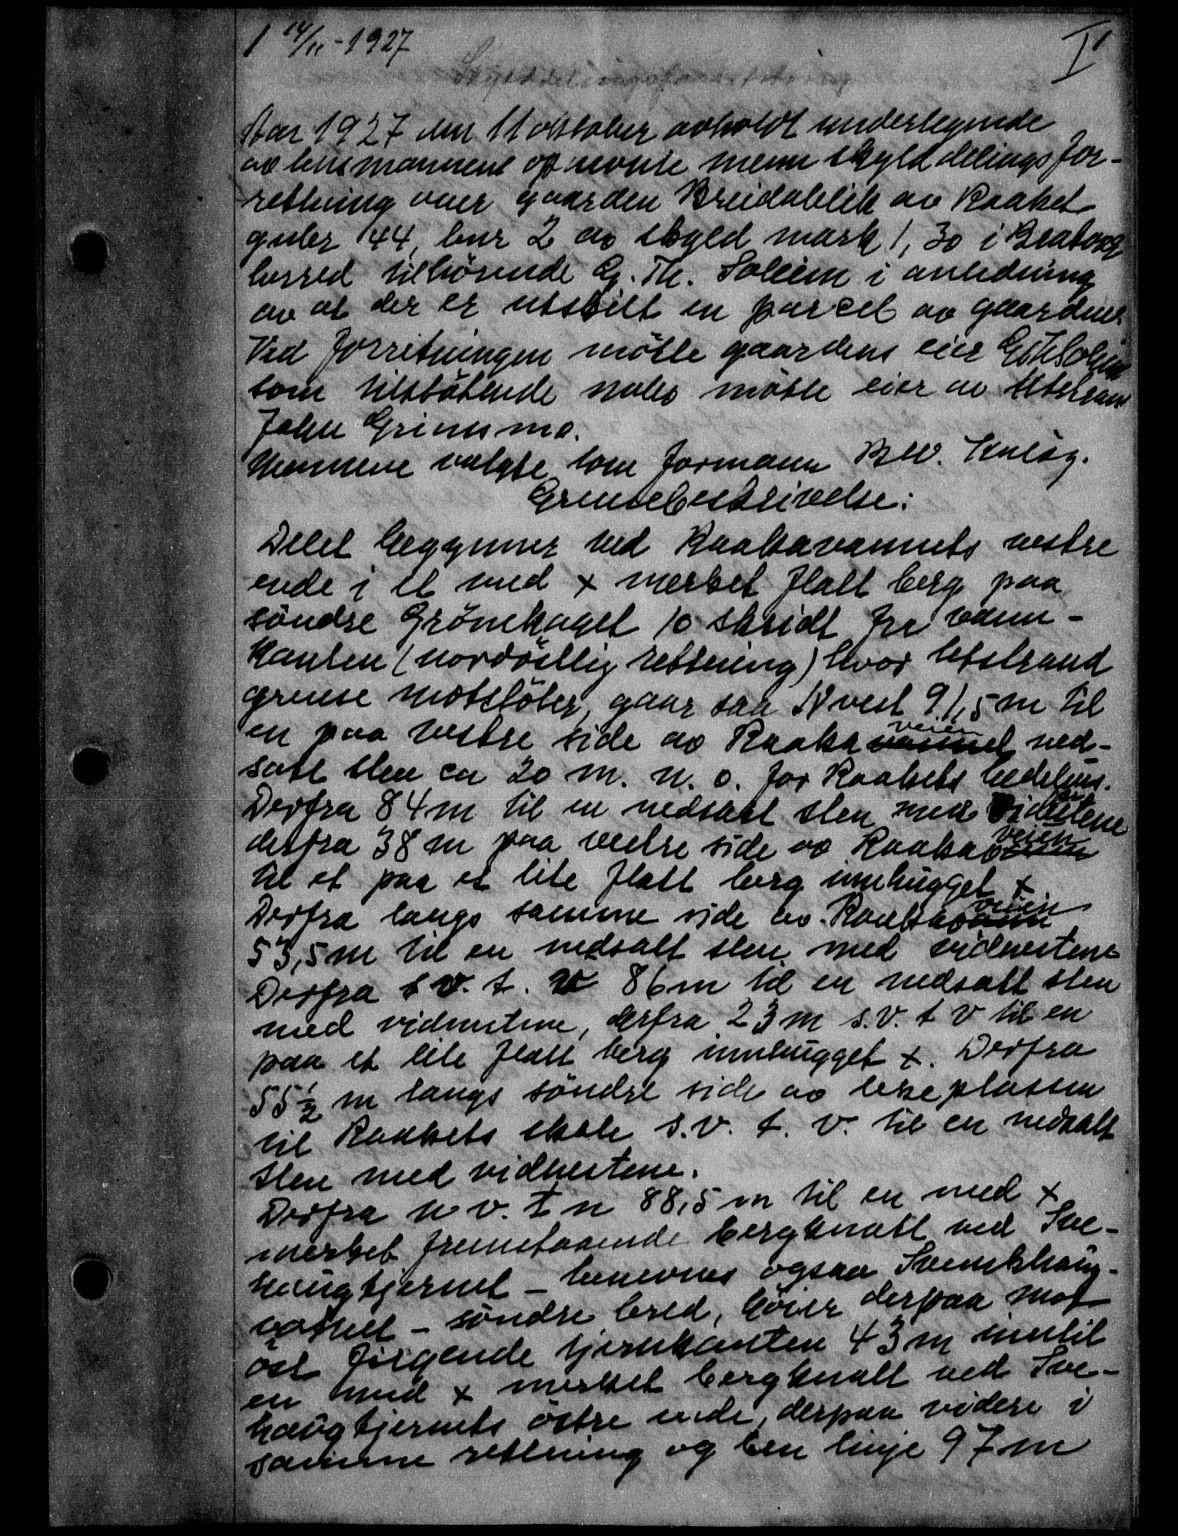 1 14/11-1927 I
Skylddelingsforretning
Aar 1927 den 11 oktober avholdt undertegnede
av lensmannen opnevnte menn skylddelingsfor-
retning over gaarden Breidablik av Raaket
gnler 144, bnr 2 av skyld mark 1,30 i Bratvær
herred tilhørende G. Th. Soleim i anledning
av at der er utskilt en parcel av gaarden.
Ved forretningen møtte gaardens eier G Th Soleim
som tilstøtende nabo møtte eier av
John Grimsmo.
Mennene valgte som formann
Grensebeskrivelse:
Delet begynner ved Raakavannets vestre
ende i et med x merket flatt berg paa
søndre Grønehaget 10 skridt fra vann-
kanten (nordøstlig rettning) hvor Utstrand
grense møtstøter, gaar saa N vest 91,5 m til
en paa vestre side av Raakavannet veien ned-
satt sten ca 20 m. n. o. for Raakets bedehus.
Derfra 84 m til en nedsatt sten med vidnestene
derfra 38 m paa vestre side av Raakavann veien
til et paa et lite flatt berg innhugget x.
Derfra langs samme side av Raakavann veien
53,5 m til en nedsatt sten med vidnestene
Derfra s v. t. v 86 m til en nedsatt sten
med vidnestene, derfra 23 m s.v. t v til en
paa et lite flatt berg innhugget x. Derfra
55 1/2 m langs søndre side av lekeplassen
til Raakets skole s.v. t. v. til en nedsatt
sten med vidnestene.
Derfra n v. t n 88,5 m til en med x
merket fremstaaende bergknatt ved Sve-
haugtjernet - benevnes ogsaa
- søndre bred, bøier derpaa mot
øst følgende tjernkanten 43 m inntil
en med x merket bergknatt ved Sve-
haugtjernets østre ende, derpaa videre i
samme rettning og ben linje 97 m